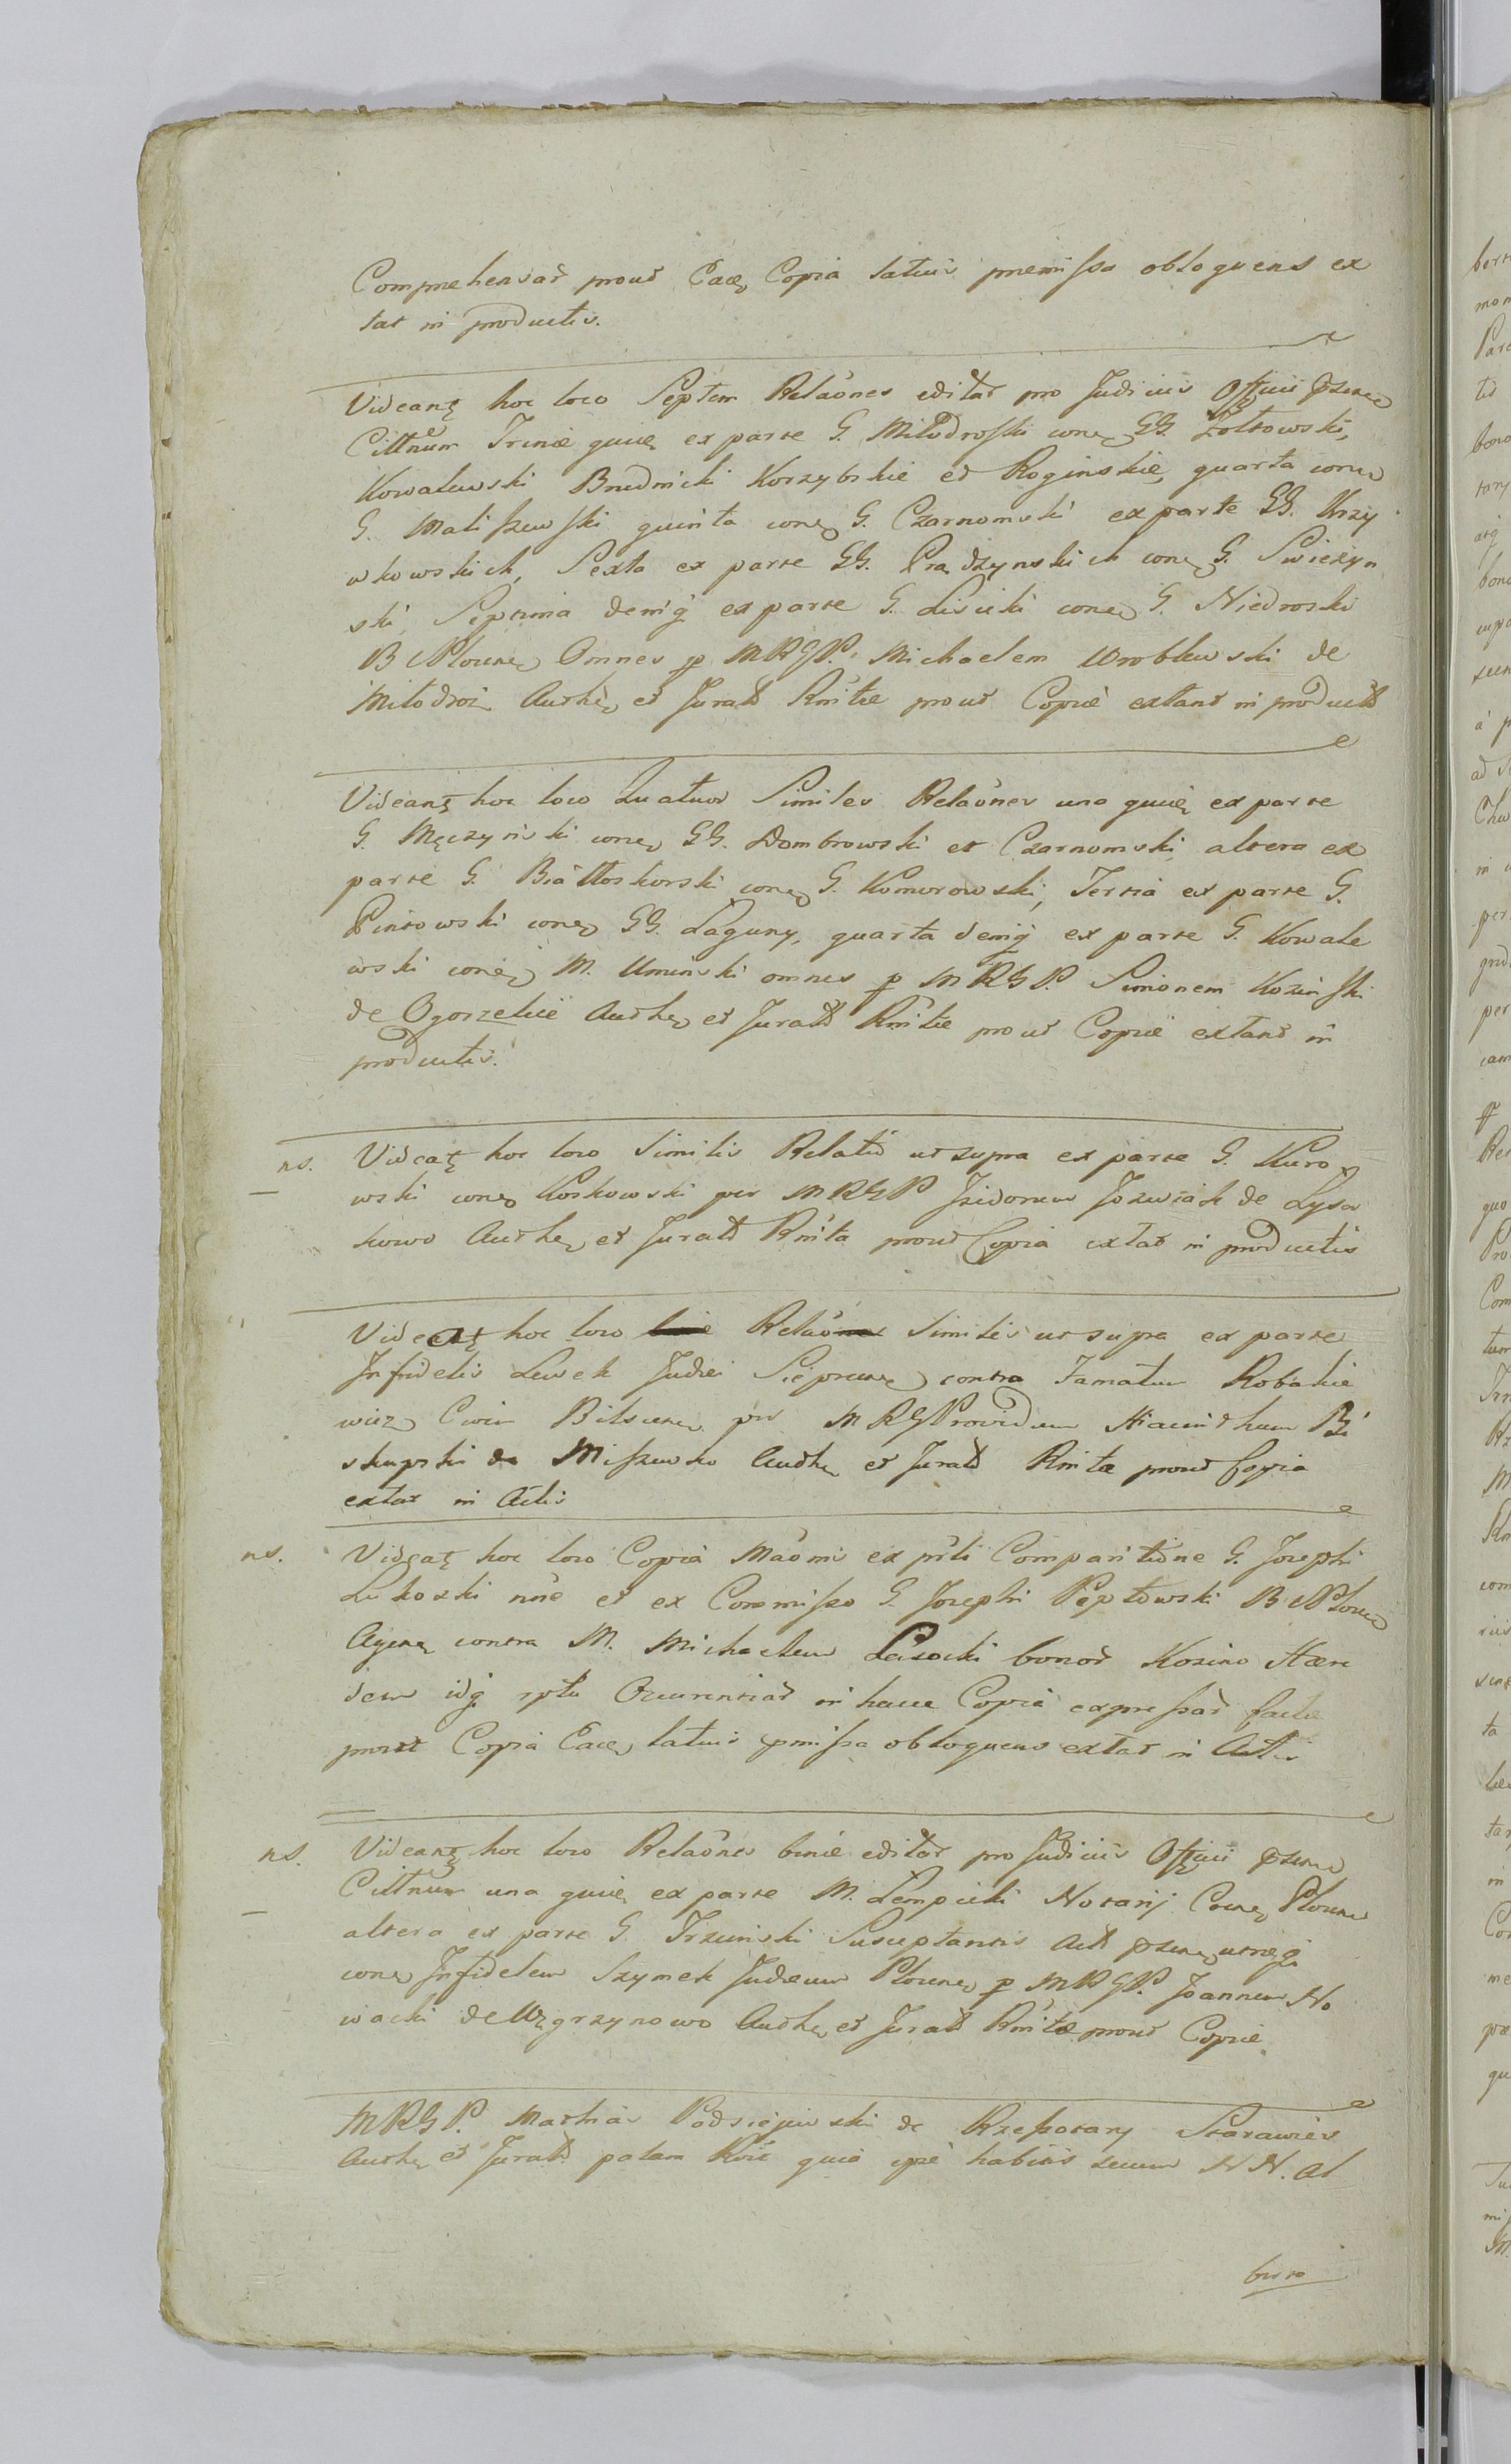 Comprehensar prout Eaeq Copia latius praemissa obloquens ex
tat in productis.
Videant hoc loco Septem Relaones editar pro Judiciis Offcii
Cittnum Trinae quie ex parte G. Miłodroski cone GG. Żołtowski,
Kowalewski Brudnicki Korzybskie et Roginskie, quarta cone
G. Maliszewski quinta cone G. Czarnomski ex parte GG. Krzy
wkowskich, Sexta ex parte GG. Prądzynskich cone G. Swiezyn
ski, Septima deniq ex parte G. Lisicki cone G. Niedroski
B Plocen Omnes p MRGP. Michaelem Wroblewski de
Miłodroż Auth et Jurat Rnitae prout Copiae extant in product
Videant hoc loco Quatuor Similes Relaones una quie ex parte
G. Męczynski cone GG. Dombrowski et Czarnomski, altera ex
parte G. Białłoskorski cone G. Komorowski, Tertia ex parte G.
Pintowski cone GG. Laguny, quarta deniq ex parte G. Kowale
wski cone M. Uminski omnes p MRGP. Simonem Kozinski
de Ogorzelice Auth et Jurat Rnitae prout Copiae extant in
productis.
ns. Videat hoc loco Similis Relatio ut supra ex parte G. Kuro
wski cone Koskowski per MRGP Jzidorum Jozwiak de Lysa
kowo Auth et Jurat Rnita prout Copia extat in productis
Videat hoc loco Relao Similis ut supra ex parte
Jnfidelis Lewek Judei Sieprcen contra Famatum Robakie
wicz Civem Bilscen per MRGProvidum Hiacinthum Bi
skupski de Miszewko Auth et Jurat Rnita prout Copia
extat in Actis
ns. Videat hoc loco Copia Maonis ex prli Comparitione G. Josephi
Likoski nne et ex Commisso G. Josephi Pęptowski B Plocen
Agen contra M. Michaelem Lasocki bonor Kozino Haere
dem idq rptu Ocurentiar in hacce Copia expressar factae
prout Copia Eaeq latius pmissa obloquens extat in Actis
ns. Videant hoc loco Relaones binae editar pro Judiciis Offcii
Cittnum una quie ex parte M. Lempicki Notarij Plocen
altera ex parte G. Trzcinski Susceptantis Act utraeq
cone Jnfidelem Szymek Judaeum Plocen p MRGP. Joannem No
wacki de Węgrzynowo Auth et Jurat Rnitae prout Copiae
MRGP. Mathias Podsiejewski de Rzeszotary Starawies
Auth et Jurat palam Rvit quia ipse habitis secum NN. al